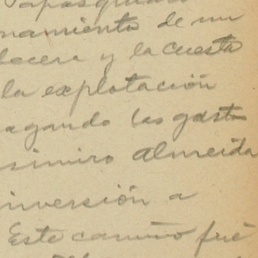 namiento de un
locera y la cuesta
la explotación
agando los gastos
simiro Almeida
inversión a
Este camino fué